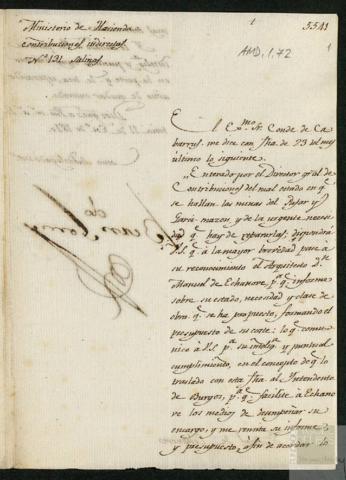 Ministerio de Hacienda
Contribuciones indirectas.
Nº 191. Salinas.
1
5541
AMD, 1, 72
1
El Exmo. Sr. Conde de Ca-
barrus, me dice con fha. de 23 del mes
último lo siguiente.
"Enterado por el Director gral. de
Contribuciones del mal estado en q.e
se hallan las minas del y
y de la urgente necesi-
dad q.e hay de repararlas; dispondrá
V.S. q.e á la mayor brevedad pase á
su reconocimiento el Arquitecto D.n
Manuel de Echanove, p.a q.e informe
sobre su estado, necesidad y clase de
obra q.e se ha propuesto, formando el
presupuesto de su coste: lo q.e comu-
nico á V.S. p.a su intelig.a y puntual
cumplimiento, en el concepto de q.e lo
traslado con esta fha. al Intendente
de Burgos, p.a q.e facilite á Echano-
ve los medios de desempeñar su
encargo, y me remita su informe
y presupuesto, á fin de acordar lo